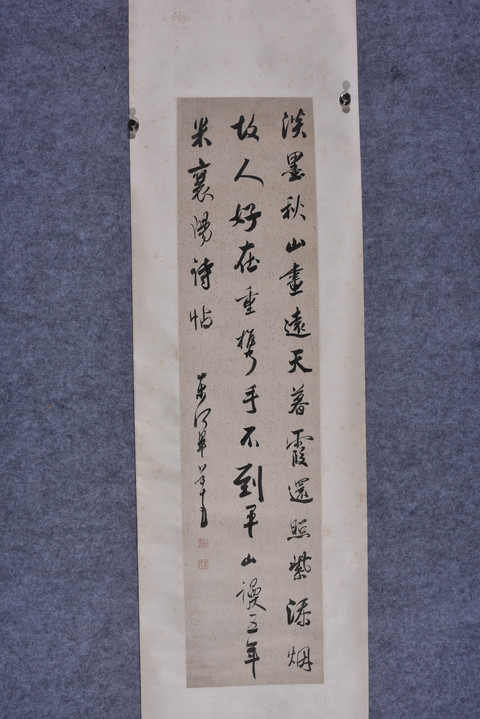 淡墨秋山畫遠天暮霞還照紫添烟
故人好在重攜手不到平山謾五年
米襄陽詩帖